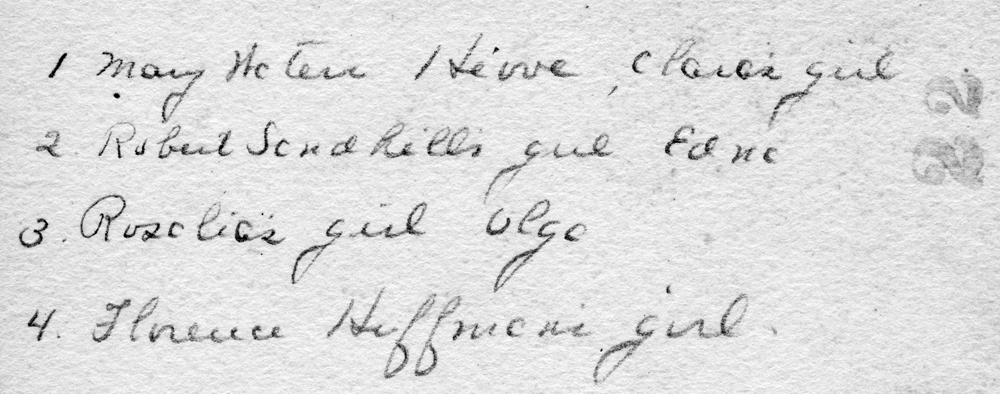 1 Mary Clara's girl
2. Robert Sandhills girl Edna
3. Rosalia's girl Olga
4. Florence Huffman's girl.
222